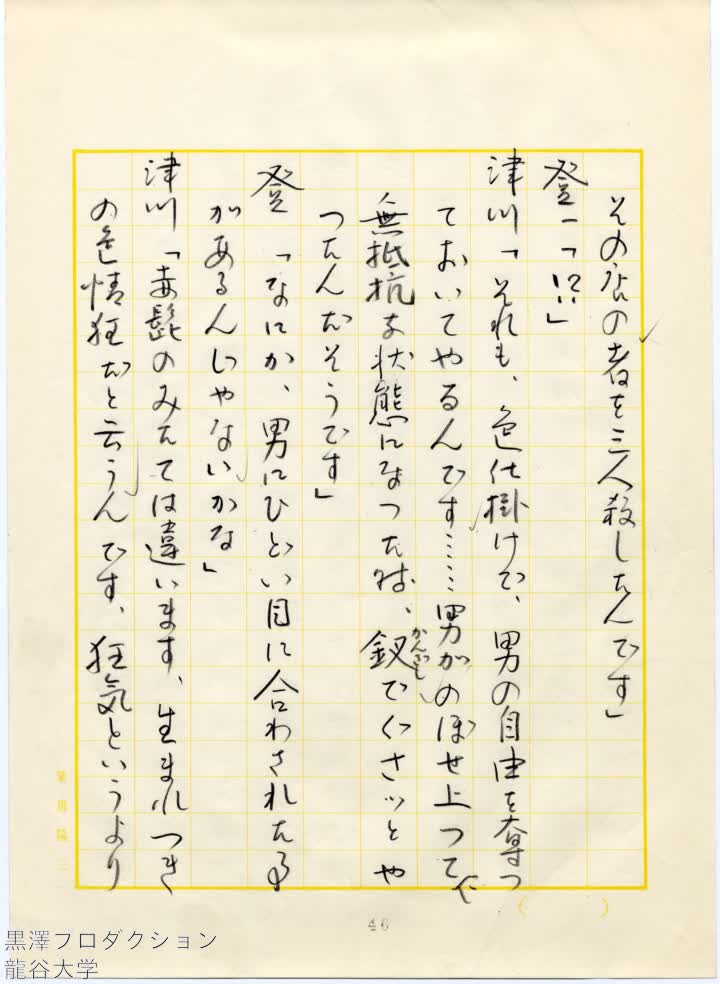 その店の者を三人殺したんです」
登「「!?」
津川「それも、色仕掛けで、男の自由を奪っ
ておいてやるんです……男がのぼせ上って
無抵抗な状態になった時、釵でぐさッとや
かんざし
ったんだそうです」
登　「なにか、男にひどい目に合わされた事
があるんじゃないかな」
津川「赤髭のみたては違います、生まれつき
の色情狂だと云うんです、狂気というより
46
黒澤プロダクション
龍谷大学